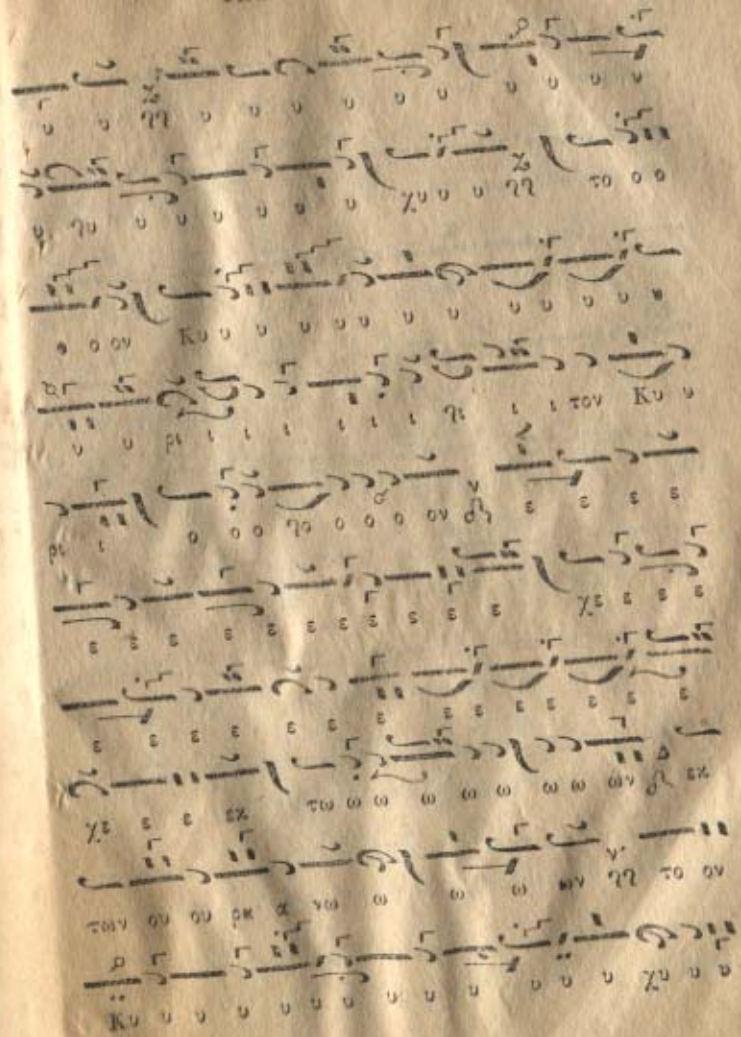 υ υ υ υ υ υ υ υ υ υ υ υ
υ ηυ υ υ υ υ υ υ χυ υ υ το ο ο
ο ο ον Κυ υ υ υ υυ υ υ υ υ υ υ
υ υ ρι ι ι ι ι ι ι ηι ι ι τον Κυ υ
ρι ι ο ο ο ηο ο ο ο ον ε ε ε ε
ε ε ε ε ε ε ε ε ε ε χε ε ε ε
ε ε ε ε ε ε ε ε ε ε ε ε ε
χε ε ε εκ τω ω ω ω ω ω ω ω ων εκ
των ου ου ρα α νω ω ω ω ων το ον
Κυ υ υ υ υ υ υ υ υ υ υ υ υ χυ υ υ